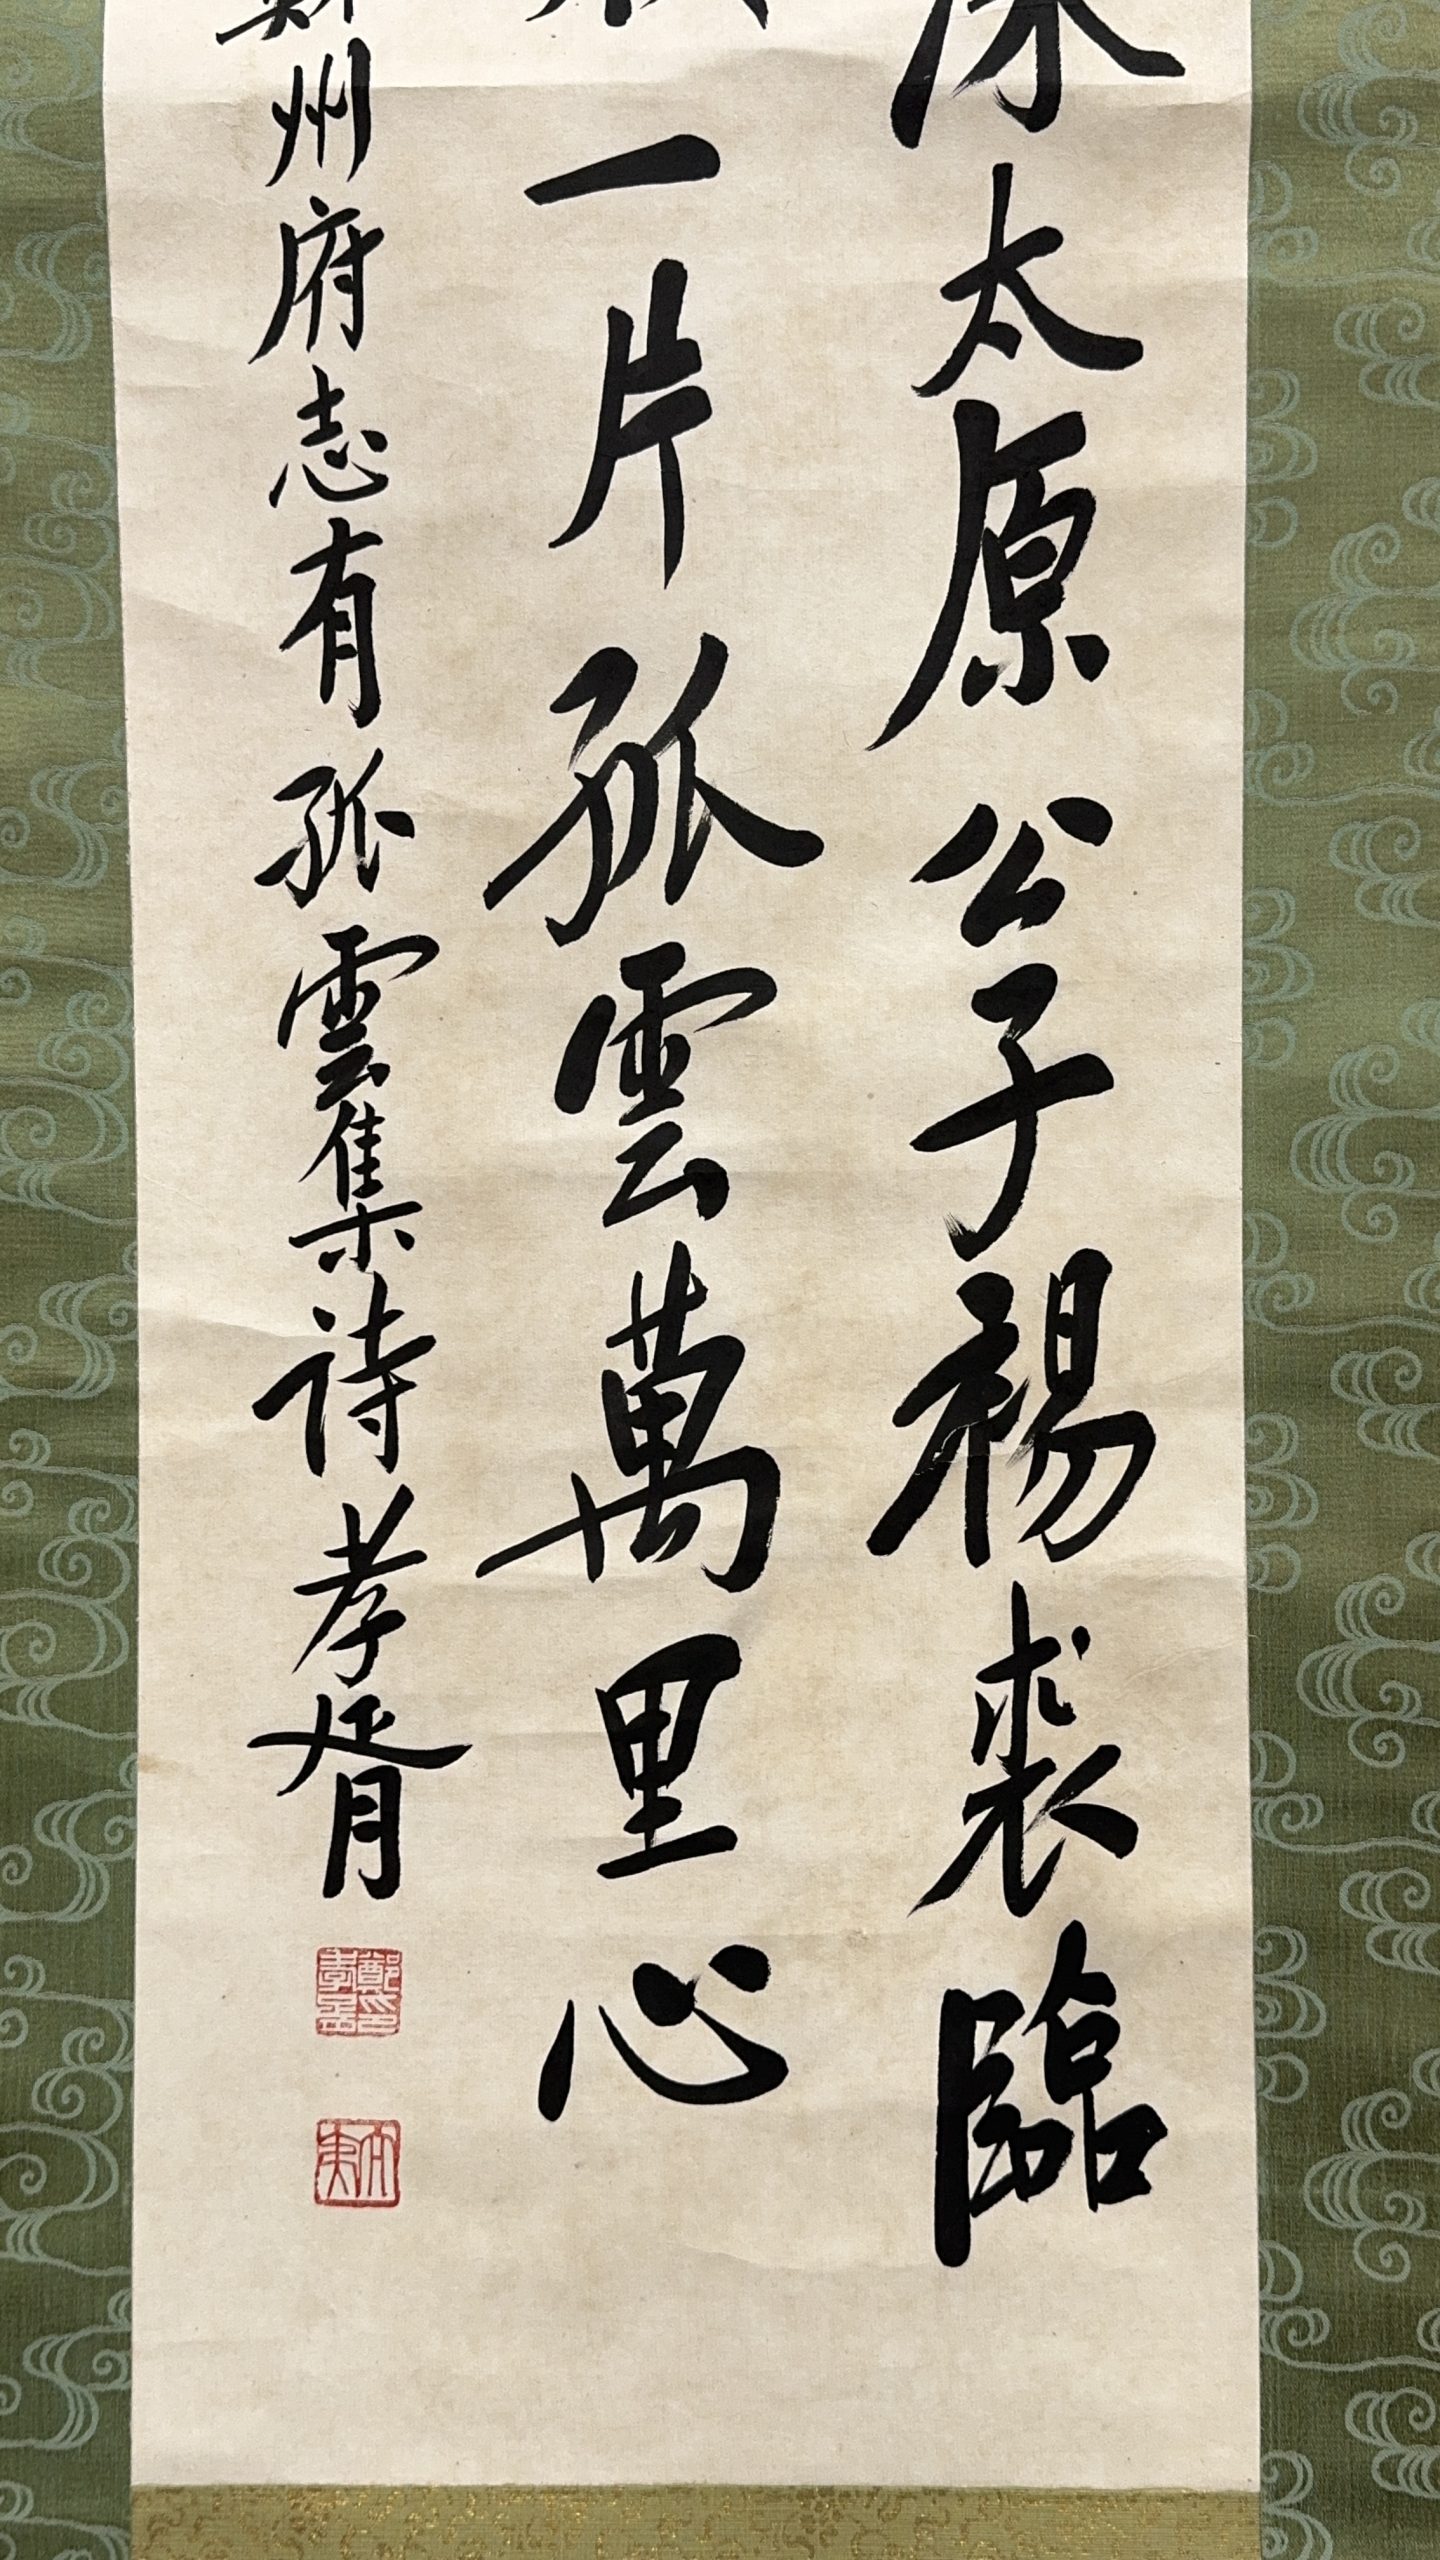 深太原公子裼裘臨
一片孤雲萬里心
鄭州府志有孤雲集詩孝胥
鄭孝胥印
太夷